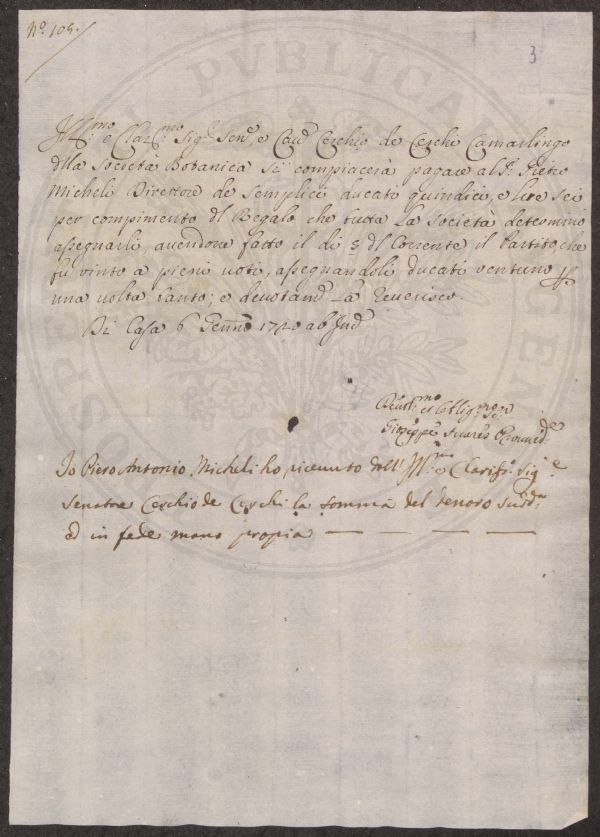 N.º 105.
3
Ill.mo e Clar.mo Sig.e Sen.e, e Cau.e Cerchio de Cerchi Camarlingo
della Società Botanica si compiacerà pagare al S.r Pietro
Micheli Direttore de Semplici ducati quindici, e lire sei
per compimento dl Regalo che tutta La Società determinò
assegnarli, avendone fatto il dì 5 dl Corrente il Partito, che
fù vinto a pieni voti, assegnandoli ducati ventuno
una volta tanto; e La reverisco.
Di Casa 6 Genn.o 1720 ab
Giuseppe Suares
Io Piero Antonio Micheli ho ricevuto dall' Ill.mo e Clariss.o Sig.e
Senatore Cerchio de Cerchi la somma del tenore sud.o
ed in fede mano propia — — — —
PVBLICA